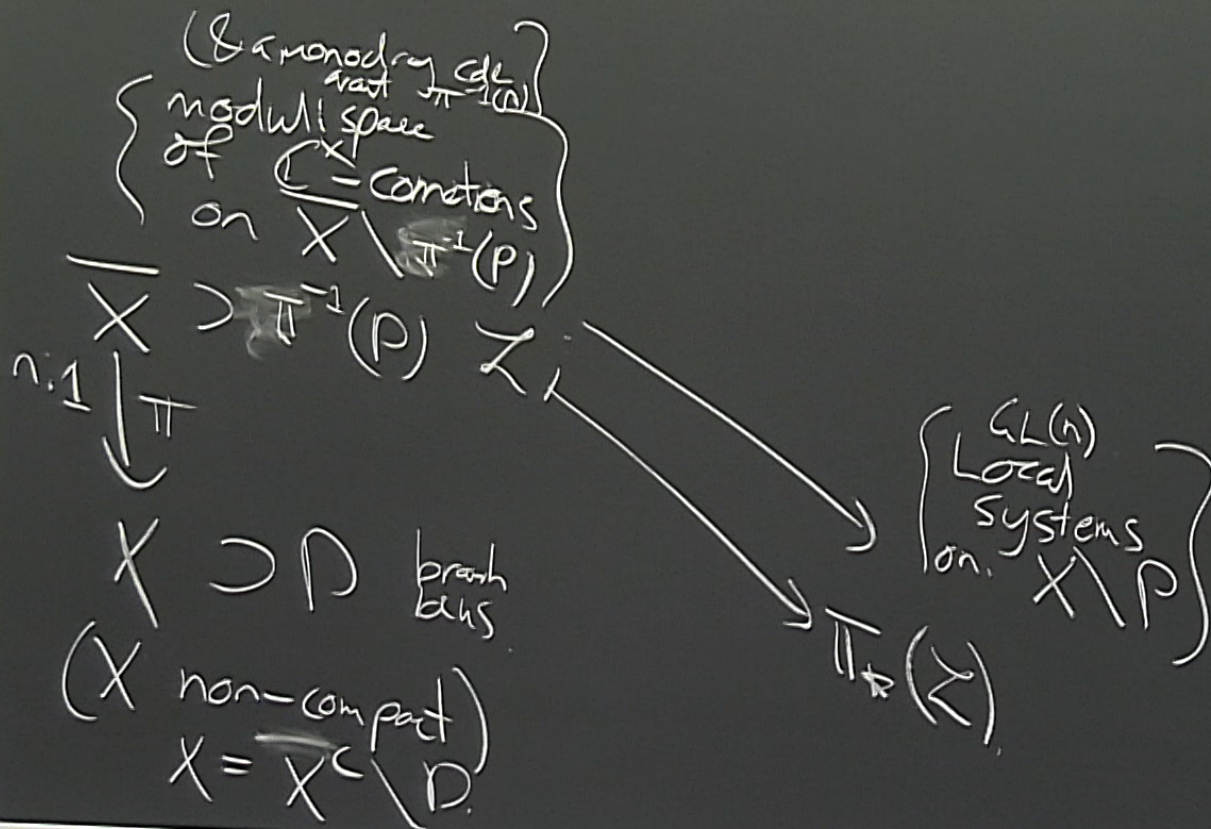 (& a monodromy cdn
around π⁻¹(P)]
{ moduli space
of ℂ^× - connections
on X̅ \ π⁻¹(P) }
X̅ ⊃ π⁻¹(P) L
n:1 ↓ π
X ⊃ P branch
locus.
(X non-compact)
X = X̅^c \ D.
{ GL(n)
Local
Systems
on. X \ P }
π_*(L).